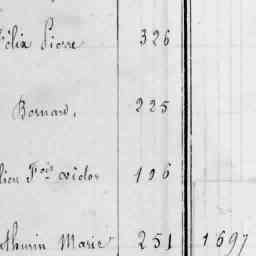 Félix Pierre 326
Bernard, 225
lien Fois victor 196
athurin Marie 251 1697